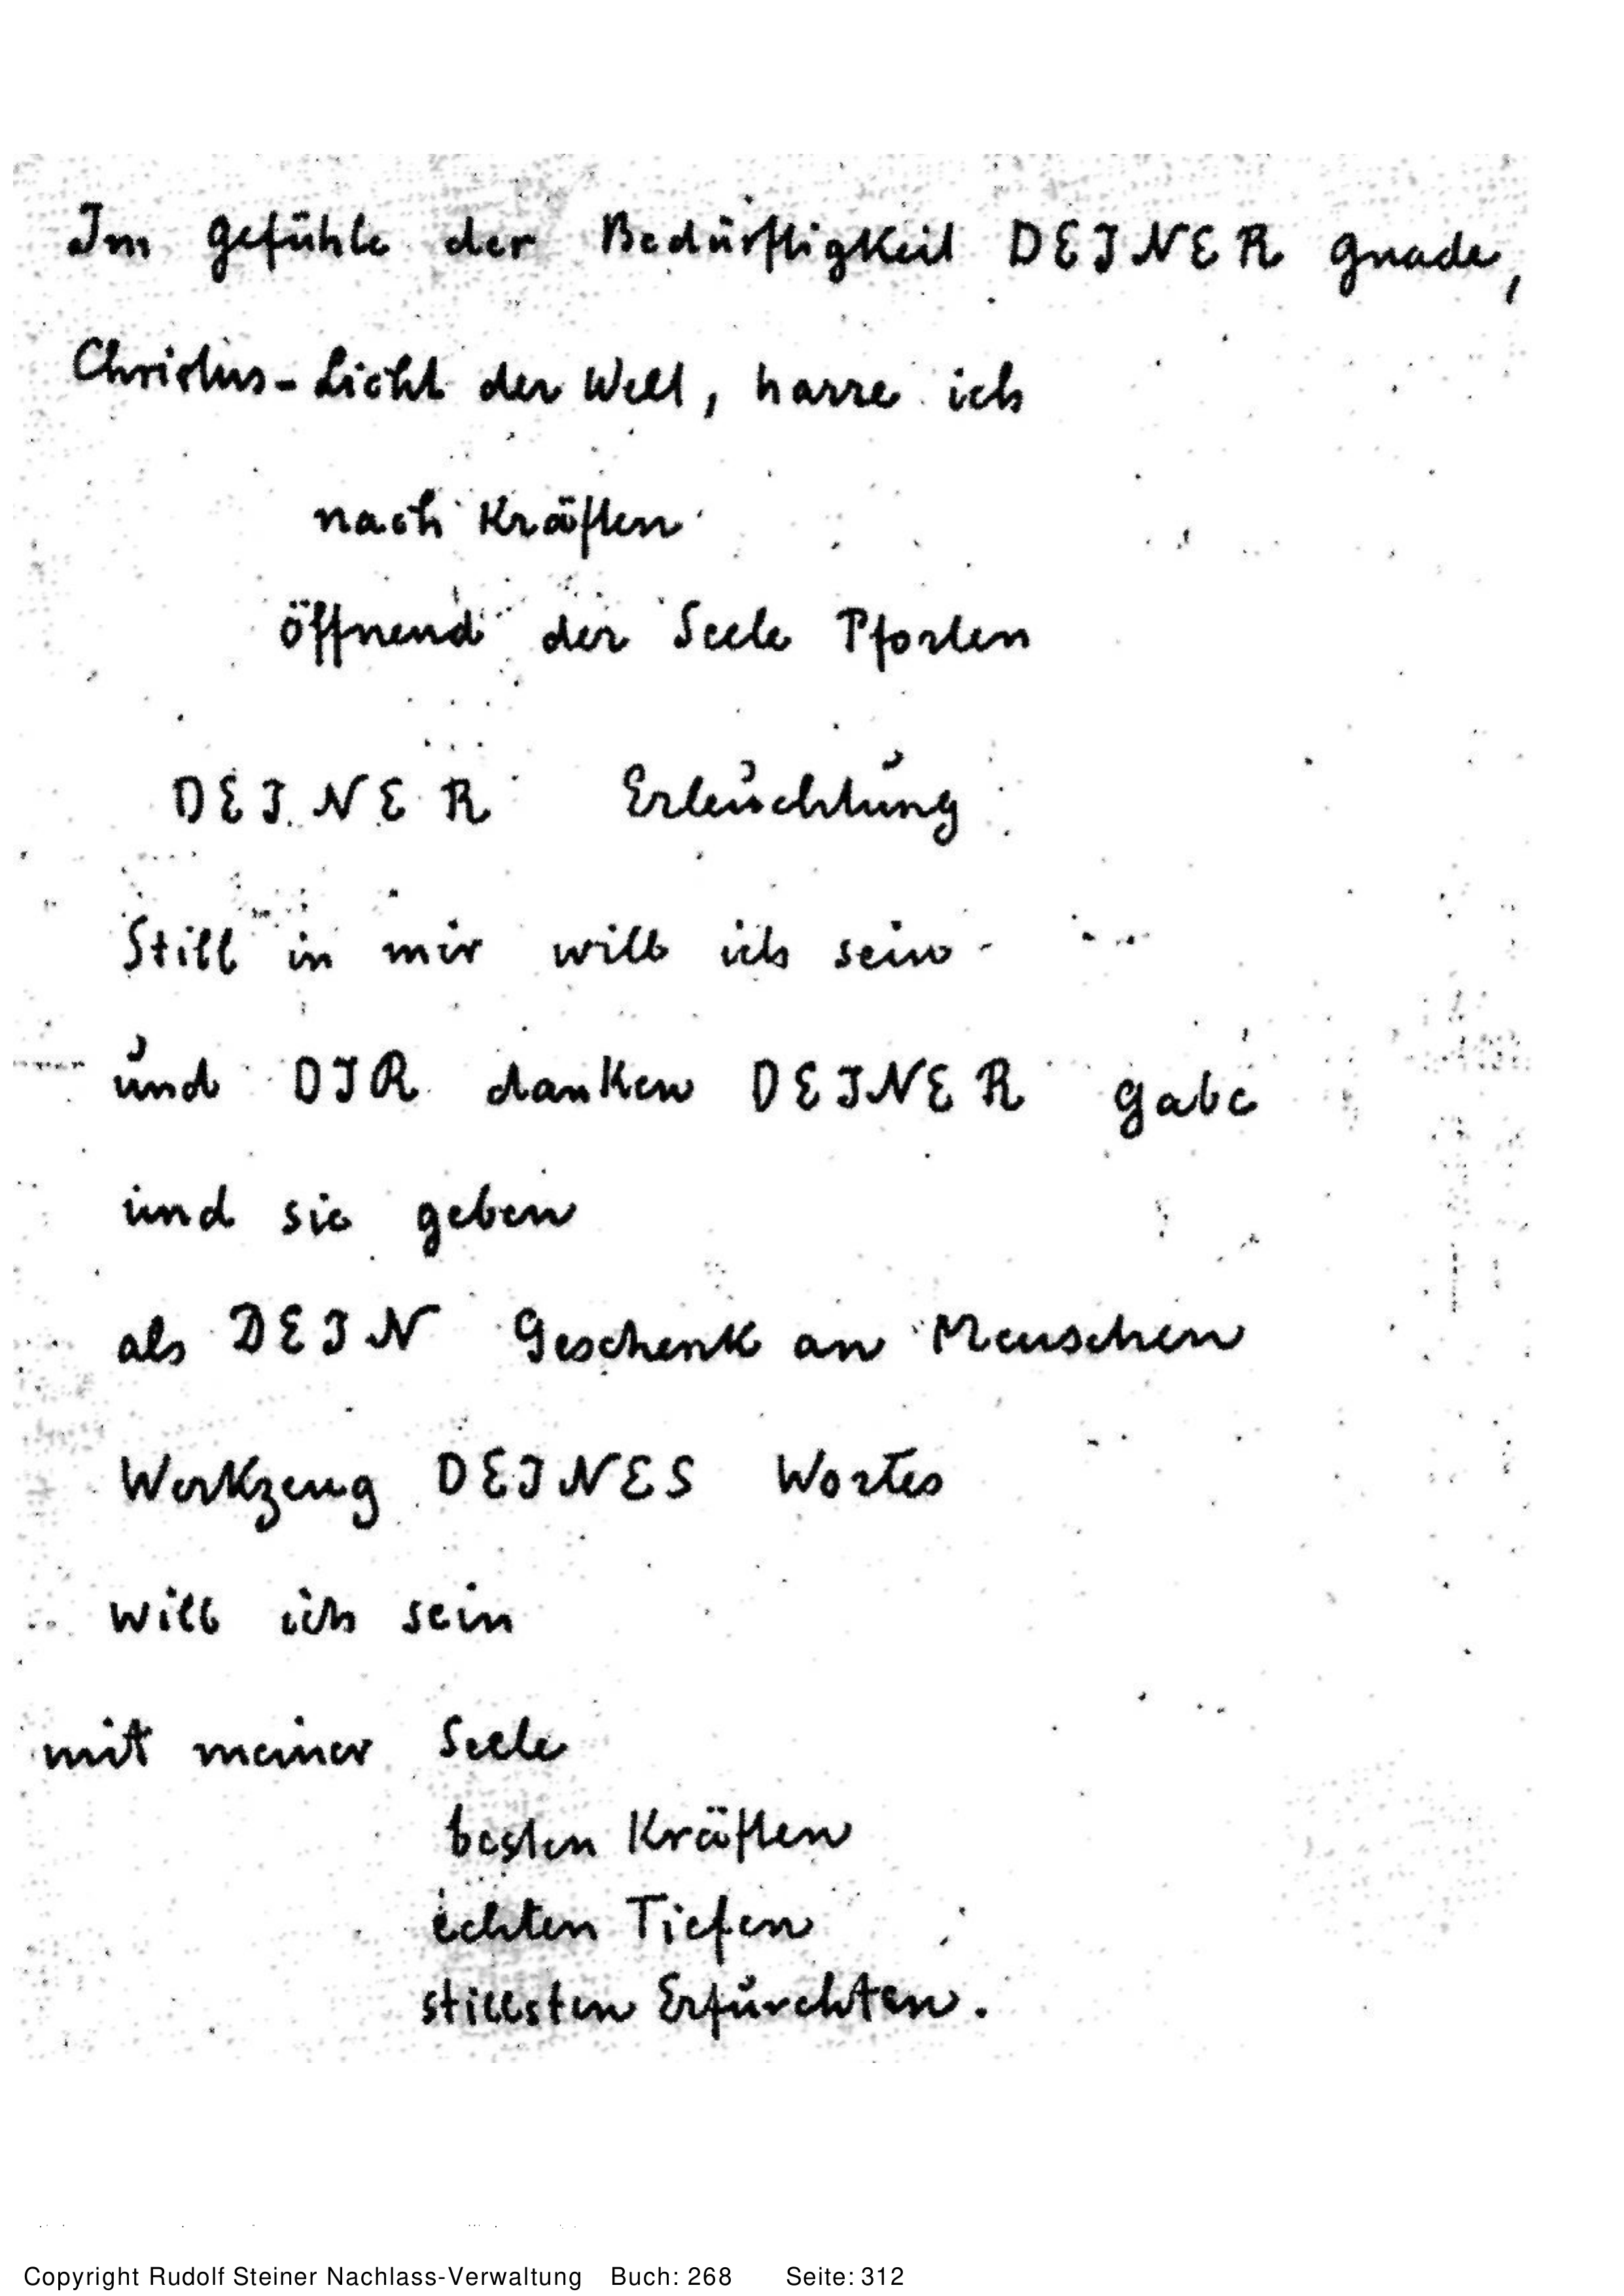 Im Gefühle der Bedürftigkeit DEINER Gnade,
Christus-Licht der Welt, harre ich
nach Kräften
öffnend der Seele Pforten
DEINER Erleuchtung
Still in mir will ich sein -
und DIR danken DEINER Gabe
und sie geben
als DEIN Geschenk an Menschen
Werkzeug DEINES Wortes
will ich sein
mit meiner Seele
besten Kräften
echten Tiefen
stillsten Erfurchten.
Copyright Rudolf Steiner Nachlass-Verwaltung Buch: 268 Seite: 312